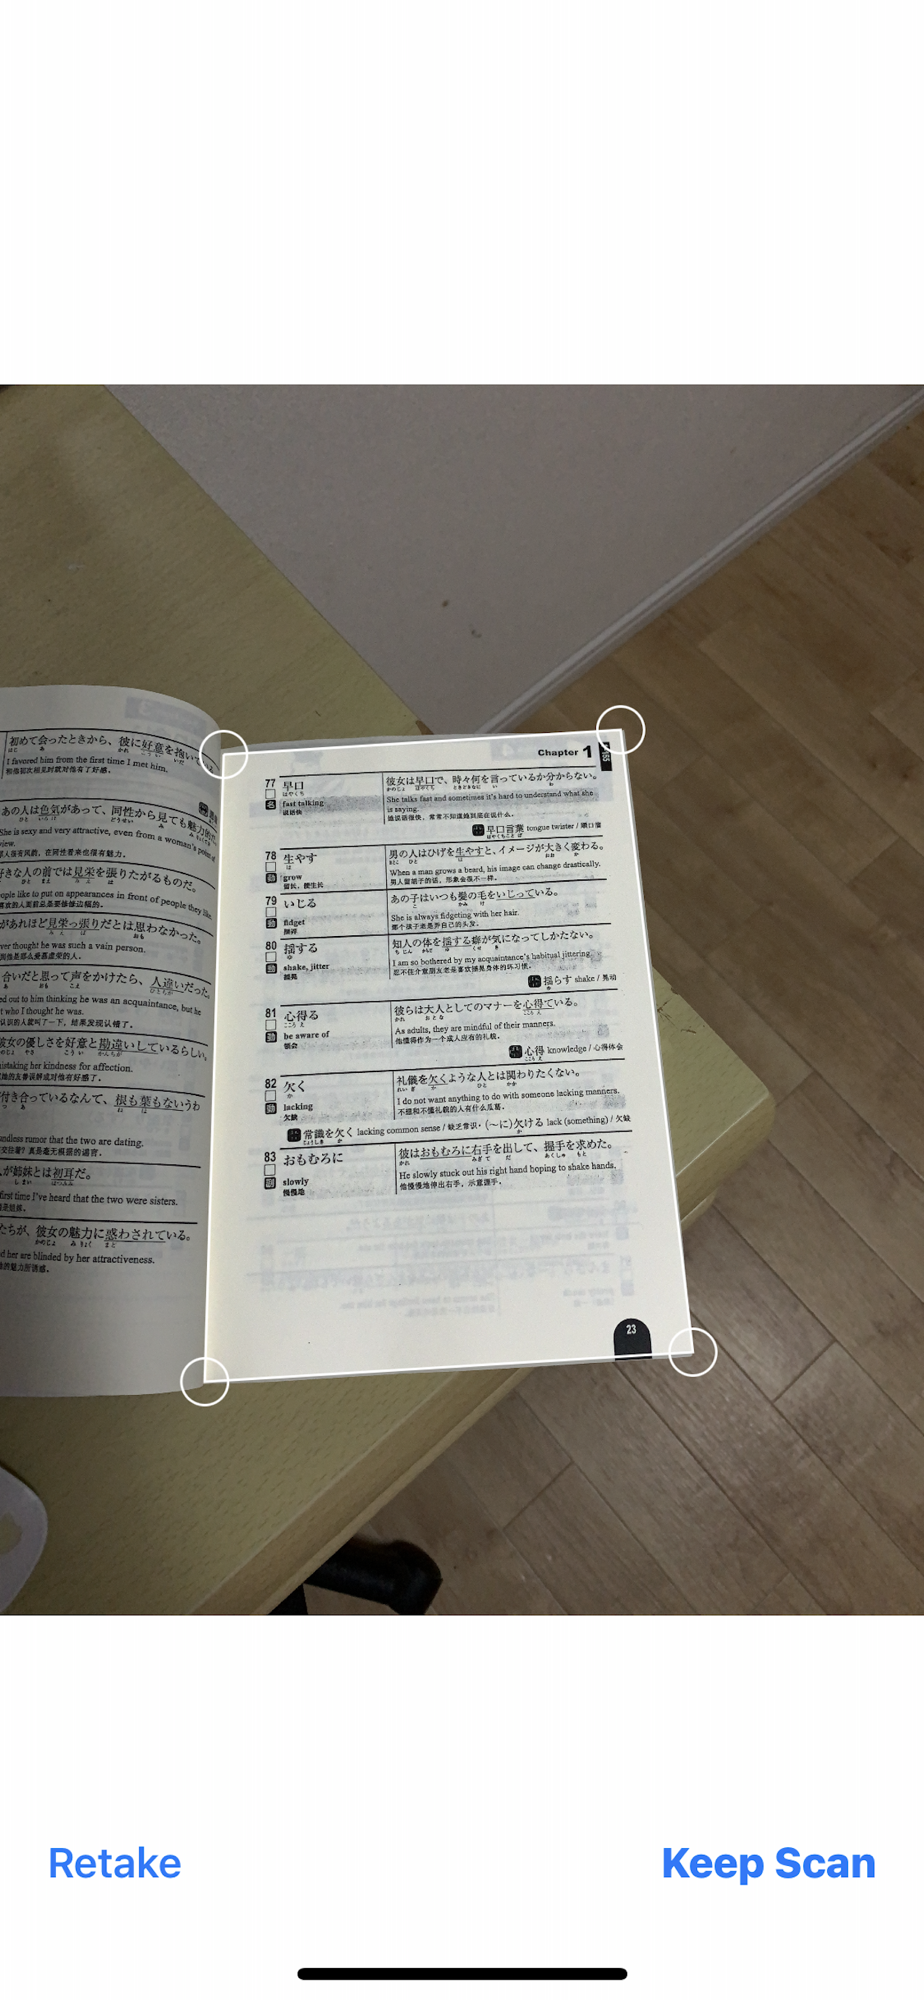 初めて会ったときから、彼に好意を抱いて
I favored him from the first time I met him.
和他初次相见时就对他有了好感。
あの人は色気があって、同性から見ても魅力的だ
She is sexy and very attractive, even from a woman's point of
view.
好きな人の前では見栄を張りたがるものだ。
people like to put on appearances in front of people they like.
があれほど見栄っ張りだとは思わなかった。
ver thought he was such a vain person.
合いだと思って声をかけたら、人違いだった。
ed out to him thinking he was an acquaintance, but he
t who I thought he was.
认识的人就叫了一下，结果发现认错了。
彼女の優しさを好意と勘違いしているらしい。
istaking her kindness for affection.
付き合っているなんて、根も葉もないうわ
undless rumor that the two are dating.
交往着？真是毫无根据的谣言。
が姉妹とは初耳だ。
first time I've heard that the two were sisters.
たちが、彼女の魅力に惑わされている。
d her are blinded by her attractiveness.
Chapter 1
77 早口
はやくち
名 fast talking
说话快
彼女は早口で、時々何を言っているか分からない。
She talks fast and sometimes it's hard to understand what she
is saying.
她说话很快，常常不知道她到底在说什么。
早口言葉 tongue twister / 顺口溜
78 生やす
は
動 grow
留长，使生长
男の人はひげを生やすと、イメージが大きく変わる。
When a man grows a beard, his image can change drastically.
男人留胡子的话，形象会很不一样。
79 いじる
動 fidget
摆弄
あの子はいつも髪の毛をいじっている。
She is always fidgeting with her hair.
那个孩子老是弄自己的头发。
80 揺する
ゆ
動 shake, jitter
摇晃
知人の体を揺する癖が気になってしかたない。
I am so bothered by my acquaintance's habitual jittering.
忍不住介意朋友老是喜欢摇晃身体的坏习惯。
揺らす shake / 晃动
81 心得る
こころ え
動 be aware of
领会
彼らは大人としてのマナーを心得ている。
As adults, they are mindful of their manners.
他懂得作为一个成人应有的礼貌。
心得 knowledge / 心得体会
82 欠く
か
動 lacking
欠缺
礼儀を欠くような人とは関わりたくない。
I do not want anything to do with someone lacking manners.
不想和不懂礼貌的人有什么瓜葛。
常識を欠く lacking common sense / 缺乏常识・(〜に)欠ける lack (something) / 欠缺
83 おもむろに
副 slowly
慢慢地
彼はおもむろに右手を出して、握手を求めた。
He slowly stuck out his right hand hoping to shake hands.
他慢慢地伸出右手，示意握手。
23
Retake
Keep Scan